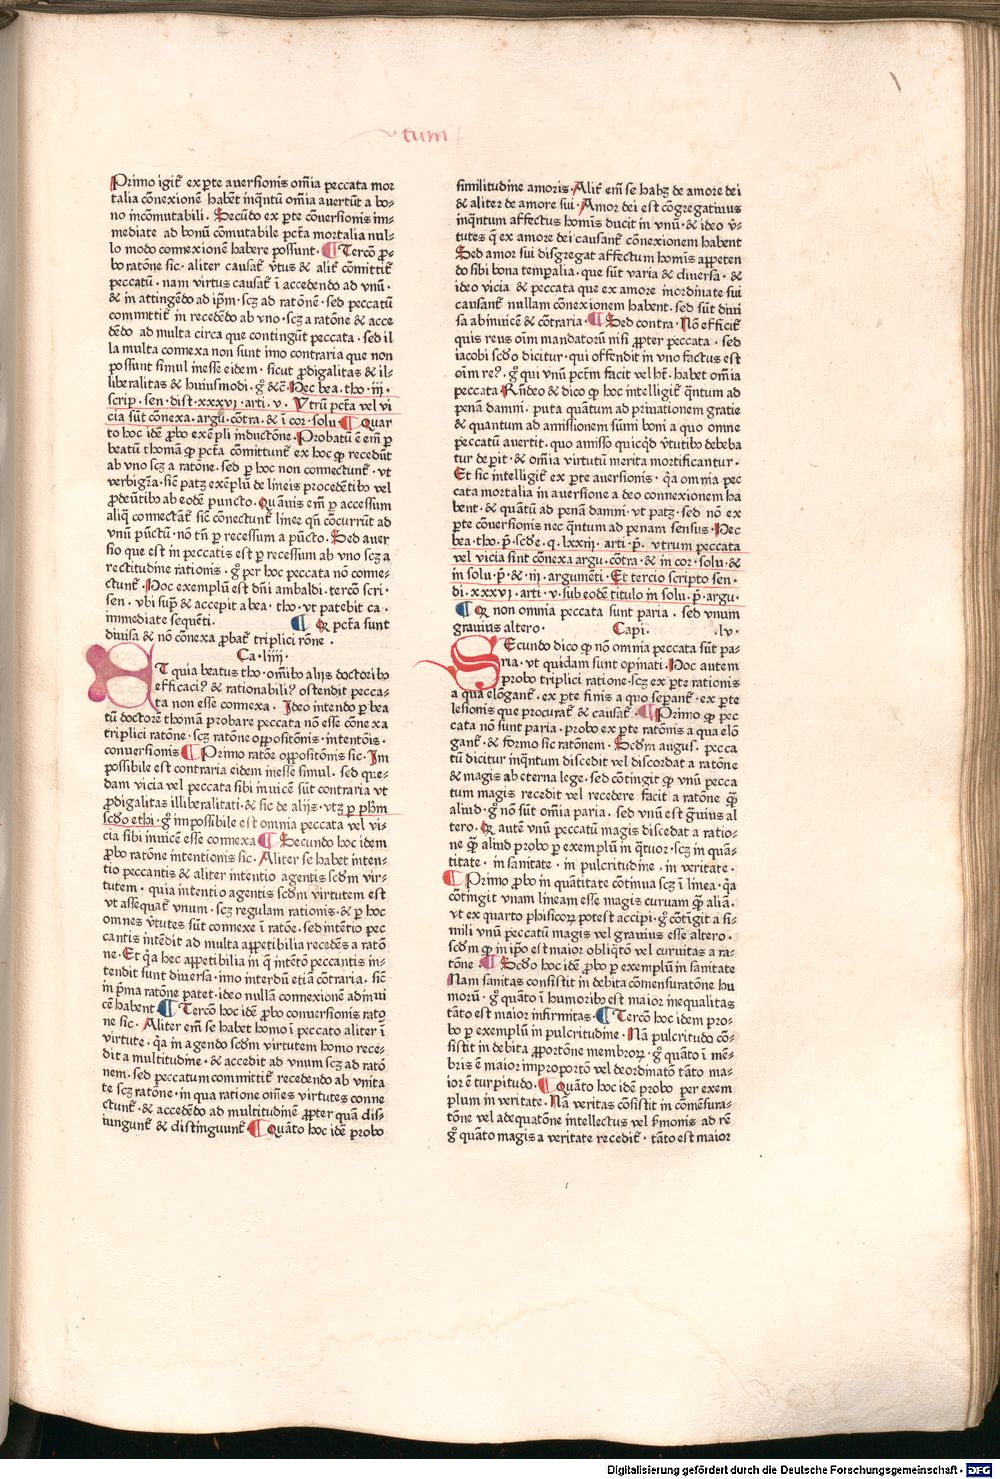 tum
Primo igit᷑ ex ꝑte auersionis om̄ia peccata mor
talia cōnexionē habēt inq̄ntū om̄ia auertūt a bo-
no incōmutabili . Secūdo ex ꝑte cōuersionis im-
mediate ad bonū cōmutabile pctā mortalia nul-
lo modo connexionē habere possunt . ¶ Tercō ꝓ-
bo ratōne sic . aliter causat᷑ v̄tus & alit᷑ cōmittit᷑
peccatū . nam virtus causat᷑ ī accedendo ad vnū .
& in attingēdo ad ip̄m . scꝫ ad ratōnē . sed peccatū
committit᷑ in recedēdo ab vno . scꝫ a ratōne & acce
dēdo ad multa circa que contingūt peccata . sed il
la multa connexa non sunt imo contraria que non
possunt simul inesse eidem . sicut ꝓdigalitas & il-
liberalitas & huiusmodi . g̊ &c̄ . Hec bea . tho . iij .
scrip . sen . dist . xxxvi . arti . v . Vtrū pctā vel vi
cia sūt cōnexa . argu . cōtra . & ī cor . solu . ¶ Quar
to hoc idē ꝓbo exēpli inductōne . Probatū ē em̄ ꝑ
beatū thomā ꝙ pctā cōmittunt᷑ ex hoc ꝙ recedūt
ab vno scꝫ a ratōne . sed ꝑ hoc non connectunt᷑ . vt
verbigr̄a . sic̄ patꝫ exēplū de lineis procedētibꝰ vel
ꝓdeūtibꝰ ab eodē puncto . Quāuis em̄ ꝑ accessum
aliq̄ connectāt᷑ sic̄ cōnectunt᷑ linee qn̄ cōcurrūt ad
vnū pūctū . nō tn̄ ꝑ recessum a pūcto . Sed auer
sio que est in peccatis est ꝑ recessium ab vno scꝫ a
rectitudine rationis . g̊ per hoc peccata nō conne-
ctunt᷑ . Hoc exemplū est dn̄i ambaldi . tercō scri .
sen . vbi sup̄ & accepit a bea . tho . vt patebit ca .
immediate sequēti . ¶ Q pctā sunt
diuisa & nō cōnexa ꝓbat᷑ triplici rōne .
Ca . liiii .
AT quia beatus tho . om̄ibꝰ alijs doctoribꝰ
efficaciꝰ & rationabiliꝰ ostendit pecca-
ta non esse connexa . Ideo intendo ꝑ bea
tū doctorē thomā probare peccata nō esse cōnexa
triplici ratōne . scꝫ ratōne oꝑpositōnis . intentōis .
conuersionis ¶ Primo ratōe oppositōnis sic . Im
possibile est contraria eidem inesse simul . sed que-
dam vicia vel peccata sibi inuicē sūt contraria vt
ꝓdigalitas illiberalitati . & sic de alijs . vtꝫ ꝑ pħm
scd̄o ethi . g̊ impossibile est omnia peccata vel vi-
cia sibi inuicē esse connexa ¶ Secundo hoc idem
ꝓbo ratōne intentionis sic . Aliter se habet inten-
tio peccantis & aliter intentio agentis scd̄m vir-
tutem . quia intentio agentis scd̄m virtutem est
vt assequat᷑ vnum . scꝫ regulam rationis . & ꝑ hoc
omnes v̄tutes sūt connexe ī ratōe . sed intētio pec
cantis intēdit ad multa appetibilia recedēs a ratō
ne . Et q̄a hec appetibilia in q̄ intētō peccantis in-
tendit sunt diuersa . imo interdū etiā cōtraria . sic̄
in p̄ma ratōne patet . ideo nullā connexionē adinui
cē habent . ¶ Tercō hoc idē ꝓbo conuersionis rato
ne sic . Aliter em̄ se habet homo ī peccato aliter ī
virtute . q̄a in agendo scd̄m virtutem homo rece-
dit a multitudine . & accedit ad vnum scꝫ ad ratō
nem . sed peccatum committit᷑ recedendo ab vnita
te scꝫ ratōne . in qua ratione om̄es virtutes conne
ctunt᷑ . & accedēdo ad multitudinē ꝓpter quā dis-
iungunt᷑ & distinguunt᷑ . ¶ Quāto hoc idē probo
similitudine amoris . Alit᷑ em̄ se habꝫ de amore dei
& aliter de amore sui . Amor dei est cōgregatiuus
inq̄ntum affectus homīs ducit in vnū . & ideo v̄-
tutes q̄ ex amore dei causant᷑ cōnexionem habent
Sed amor sui disgregat affectum homīs appeten
do sibi bona temꝑalia . que sūt varia & diuersa . &
ideo vicia & peccata que ex amore inordinate sui
causant᷑ nullam cōnexionem habent . sed sūt diui
sa abinuicē & cōtraria . ¶ Sed contra . Nō efficit᷑
quis reus oīm mandatorū nisi ꝓpter peccata . sed
iacobi scd̄o dicitur . qui offendit in vno factus est
oīm reꝰ . g̊ qui vnū pctm̄ facit vel hēt . habet om̄ia
peccata . Rn̄deo & dico ꝙ hoc intelligit᷑ q̄ntum ad
penā damni . puta quātum ad priuationem gratie
& quantum ad amissionem sūmi boni a quo omne
peccatū auertit . quo amisso quicq̄d v̄tutibꝰ debeba
tur deꝑit . & om̄ia virtutū merita mortificantur .
Et sic intelligit᷑ ex ꝑte auersionis . q̄a omnia pec
cata mortalia in auersione a deo connexionem ha
bent . & quātū ad penā damni . vt patꝫ . sed nō ex
ꝑte cōuersionis nec q̄ntum ad penam sensus . Hec
bea . tho . p̄ . scd̄e . q . lxxiij . arti . p̄ . vtrum peccata
vel vicia sint cōnexa argu . cōtra . & in cor . solu . &
in solu . p̄ . & iij . argumēti . Et tercio scripto sen .
di . xxxvi . arti . v . sub eodē titulo in solu . p̄ . argu .
¶ Q non omnia peccata sunt paria . sed vnum
grauius altero . Capi . lv .
SEcundo dico ꝙ nō omnia peccata sūt pa-
ria . vt quidam sunt opinati . Hoc autem
probo triplici ratione . scꝫ ex ꝑte rationis
a qua elōgant᷑ . ex ꝑte finis a quo seꝑant᷑ . ex ꝑte
lesionis que procurat᷑ & causat᷑ . ¶ Primo ꝙ pec
cata nō sunt paria . probo ex ꝑte ratōnis a qua elō
gant᷑ . & formo sic ratōnem . Scd̄m augus . pecca
tū dicitur inq̄ntum discedit vel discordat a ratōne
& magis ab eterna lege . sed cōtingit ꝙ vnū pecca
tum magis recedit vel recedere facit a ratōne q̄ꝫ
aliud . g̊ nō sūt om̄ia paria . sed vnū est ḡuius al
tero . Q autē vnū peccatū magis discedat a ratio-
ne q̄ꝫ aliud probo ꝑ exemplū in q̄tuor . scꝫ in quā-
titate . in sanitate . in pulcritudine . in veritate .
¶ Primo ꝓbo in quātitate cōtinua scꝫ ī linea . q̄a
cōtingit vnam lineam esse magis curuam q̄ꝫ aliā .
vt ex quarto phisicoꝝ potest accipi . g̊ cōtīgit a si-
mili vnū peccatū magis vel grauius esse altero .
scd̄m ꝙ in ip̄o est maior obliq̄tō vel curuitas a ra-
tōne . ¶ Scd̄o hoc idē ꝓbo ꝑ exemplū in sanitate
Nam sanitas consistit in debita cōmensuratōne hu
morū . g̊ quāto ī humoribꝰ est maior inequalitas
tāto est maior infirmitas . ¶ Tercō hoc idem pro-
bo ꝑ exemplū in pulcritudine . Nā pulcritudo cō-
sistit in debita ꝓportōne membroꝝ . g̊ quāto ī mē-
bris ē maior improportō vel deordinatō tāto ma-
ior ē turpitudo . ¶ Quāto hoc idē probo per exem
plum in veritate . Nā veritas cōsistit in cōmēsura-
tōne vel adequatōne intellectus vel s̄monis ad rē
g̊ quāto magis a veritate recedit᷑ . tāto est maior
Digitalisierung gefördert durch die Deutsche Forschungsgemeinschaft - DFG